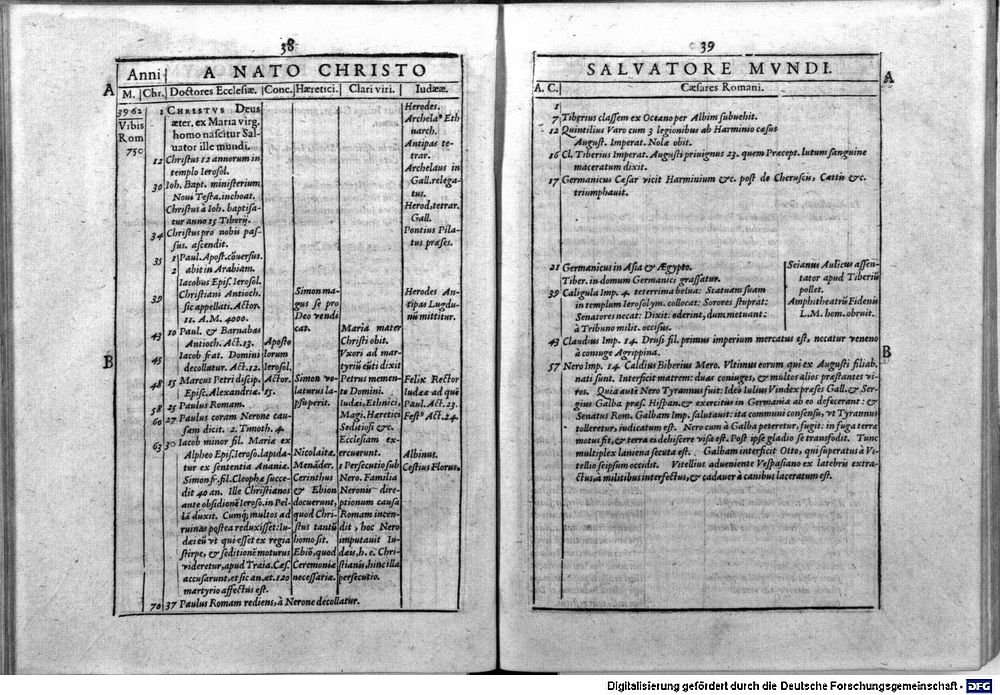 38
Anni
A NATO CHRISTO
M.
Chr.
Doctores Ecclesiæ.
Conc.
Hæretici.
Clari viri.
Iudææ.
A
B
3962
Vrbis
Rom
750
1 CHRISTVS Deus
æter. ex Maria virg.
homo nascitur Sal-
uator ille mundi.
12 Christus 12 annorum in
templo Ierosol.
30 Ioh. Bapt. ministerium
Noui Testa. inchoat.
Christus à Ioh. baptisa-
tur anno 15 Tiberij.
34 Christus pro nobis pas-
sus. ascendit.
35 1 Paul. Apost. cõuersus.
2 abit in Arabiam.
Iacobus Epis. Ierosol.
39 Christiani Antioch.
sic appellati. Actor.
11. A.M. 4000.
43 10 Paul. & Barnabas
Antioch. Act. 13.
45 Iacob frat. Domini
decollatur. Act. 12.
48 15 Marcus Petri discip.
Episc. Alexandriæ.
58 25 Paulus Romam.
60 27 Paulus coram Nerone cau-
sam dicit. 2. Timoth. 4.
63 30 Iacob minor fil. Mariæ ex
Alpheo Epis. Ieroso. lapida-
tur ex sententia Ananiæ.
Simon fr. fil. Cleophæ succe-
dit 40 an. Ille Christianos
ante obsidionẽ Ieroso. in Pel-
lã duxit. Cumq; multos ad
ruinas postea reduxisset: Iu-
dæi eũ vt qui esset ex regia
stirpe, & seditionẽ moturus
videretur, apud Traia. Cæs.
accusarunt, et sic an. æt. 120
martyrio affectus est.
70 37 Paulus Romam rediens, à Nerone decollatur.
Aposto
lorum
Ierosol.
Actor.
15.
Simon ma-
gus se pro
Deo vendi
cat.
Simon vo-
laturus la-
psu perit.
Nicolaitæ.
Menãder.
Cerinthus
& Ebion
docuerunt,
quod Chri-
stus tantũ
homo sit.
Ebiõ, quod
Ceremoniæ
necessariæ.
Maria mater
Christi obit.
Vxori ad mar-
tyriũ eũti dixit
Petrus memen-
to Domini.
Iudæi, Ethnici,
Magi. Hæretici
Seditiosi &c.
Ecclesiam ex-
ercuerunt.
1 Persecutio sub
Nero. Familia
Neronis dire-
ptionum causa
Romam incen-
dit, hoc Nero
imputauit Iu-
dæis, h. e. Chri-
stianis, hinc illa
persecutio.
Herodes.
Archelaus Eth
narch.
Antipas te-
trar.
Archelaus in
Gall. relega-
tus.
Herod. tetrar.
Gall.
Pontius Pila-
tus præses.
Herodes An-
tipas Lugdu-
nũ mittitur.
Felix Rector
Iudææ ad quẽ
Paul. Act. 23.
Festus Act. 24.
Albinus.
Cestius Florus.
39
SALVATORE MVNDI.
A. C.
Cæsares Romani.
A
B
1
7 Tiberius classem ex Oceano per Albim subuehit.
12 Quintilius Varo cum 3 legionibus ab Harminio cæsus
August. Imperat. Nolæ obit.
16 Cl. Tiberius Imperat. Augusti priuignus 23. quem Præcept. lutum sanguine
maceratum dixit.
17 Germanicus Cæsar vicit Harminium &c. post de Cheruscis, Cattis &c.
triumphauit.
21 Germanicus in Asia & Ægypto.
Tiber. in domum Germanici grassatur.
39 Caligula Imp. 4. teterrima belua: Statuam suam
in templum Ierosolym. collocat: Sorores stuprat:
Senatores necat: Dixit: oderint, dum metuant:
à Tribuno milit. occisus.
Seianus Aulicus assen-
tator apud Tiberiũ
pollet.
Amphitheatrũ Fidenis
L.M. hom. obruit.
43 Claudius Imp. 14. Drusi fil. primus imperium mercatus est, necatur veneno
à coniuge Agrippina.
57 Nero Imp. 14. Caldius Biberius Mero. Vltimus eorum qui ex Augusti filiab.
nati sunt. Interficit matrem: duas coniuges, & multos alios præstantes vi-
ros. Quia autẽ Nero Tyrannus fuit: Ideo Iulius Vindex præses Gall. & Ser-
gius Galba præs. Hispan. & exercitus in Germania ab eo defecerant: &
Senatus Rom. Galbam Imp. salutauit: ita communi consensu, vt Tyrannus
tolleretur, iudicatum est. Nero cum à Galba peteretur, fugit: in fuga terræ
motus fit, & terra ei dehiscere visa est. Post ipse gladio se transfodit. Tunc
multiplex laniena secuta est. Galbam interficit Otto, qui superatus à Vi-
tellio seipsum occidit. Vitellius adueniente Vespasiano ex latebris extra-
ctus, à militibus interfectus, & cadauer à canibus laceratum est.
Digitalisierung gefördert durch die Deutsche Forschungsgemeinschaft - DFG